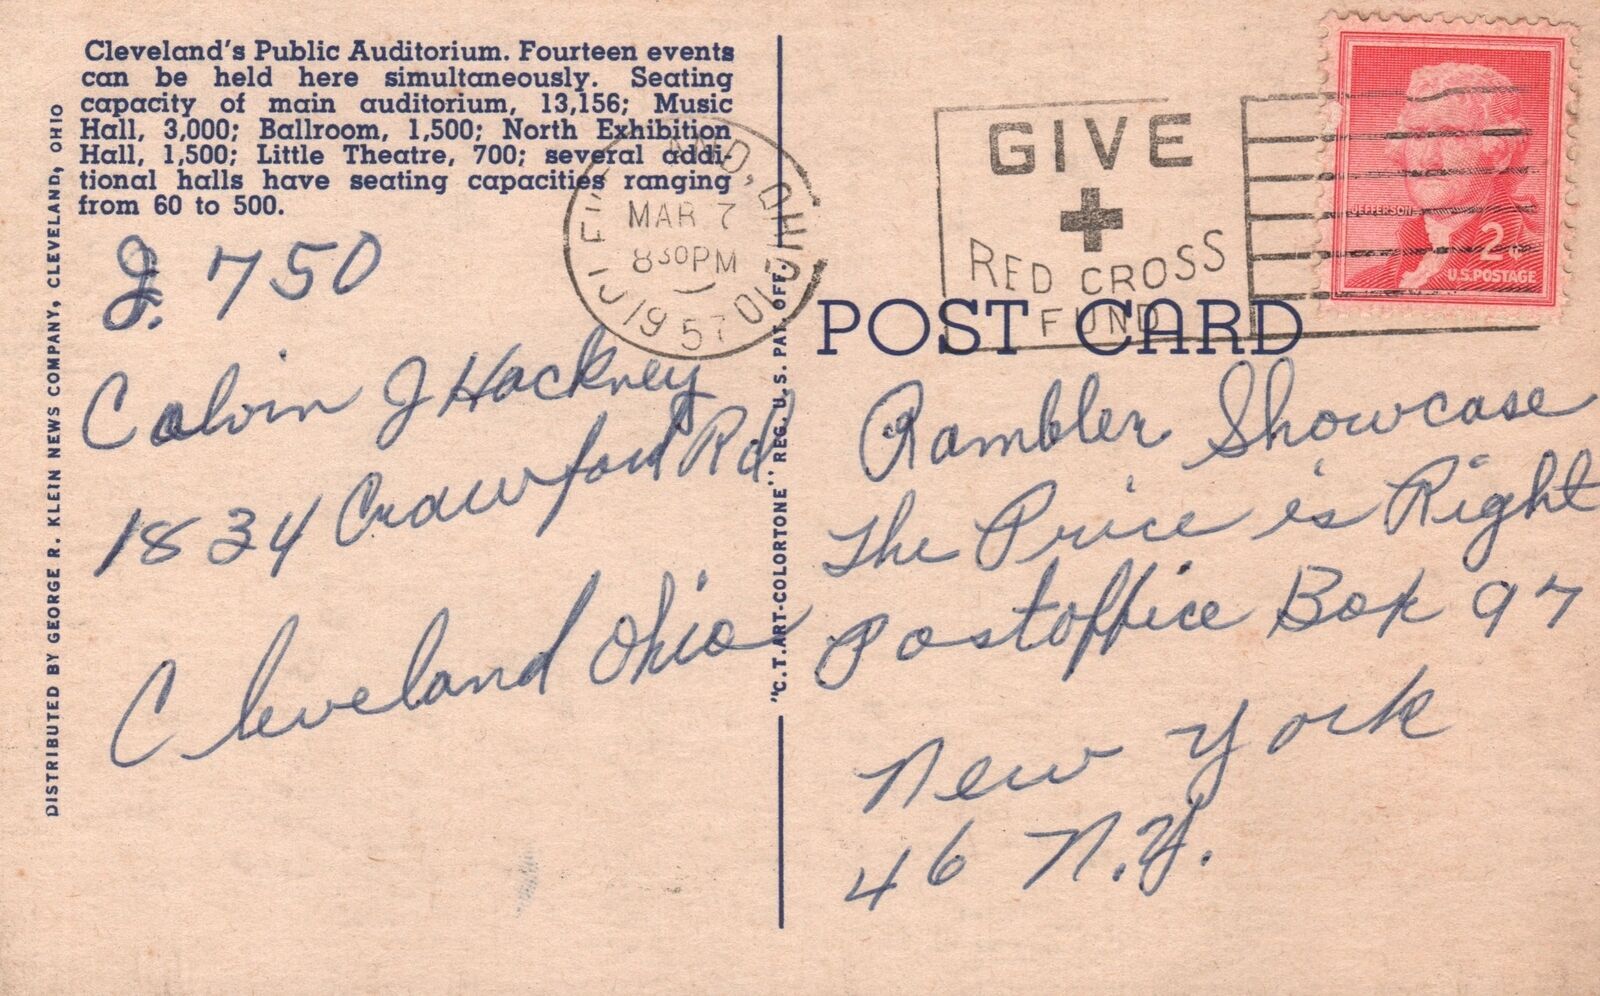 Cleveland's Public Auditorium. Fourteen events
can be held here simultaneously. Seating
capacity of main auditorium, 13,156; Music
Hall, 3,000; Ballroom, 1,500; North Exhibition
Hall, 1,500; Little Theatre, 700; several addi-
tional halls have seating capacities ranging
from 60 to 500.
DISTRIBUTED BY GEORGE R. KLEIN NEWS COMPANY, CLEVELAND, OHIO
750
Calvin J Hackney
1834 Crawford Rd
Cleveland Ohio
"C.T. ART-COLORTONE" REG. U.S. PAT. OFF.
OHIO
MAR 7
830PM
1957
GIVE
RED CROSS
FUND
JEFFERSON
2¢
U.S. POSTAGE
POST CARD
Rambler Showcase
The Price is Right
Postoffice Box 97
New York
46 N.Y.